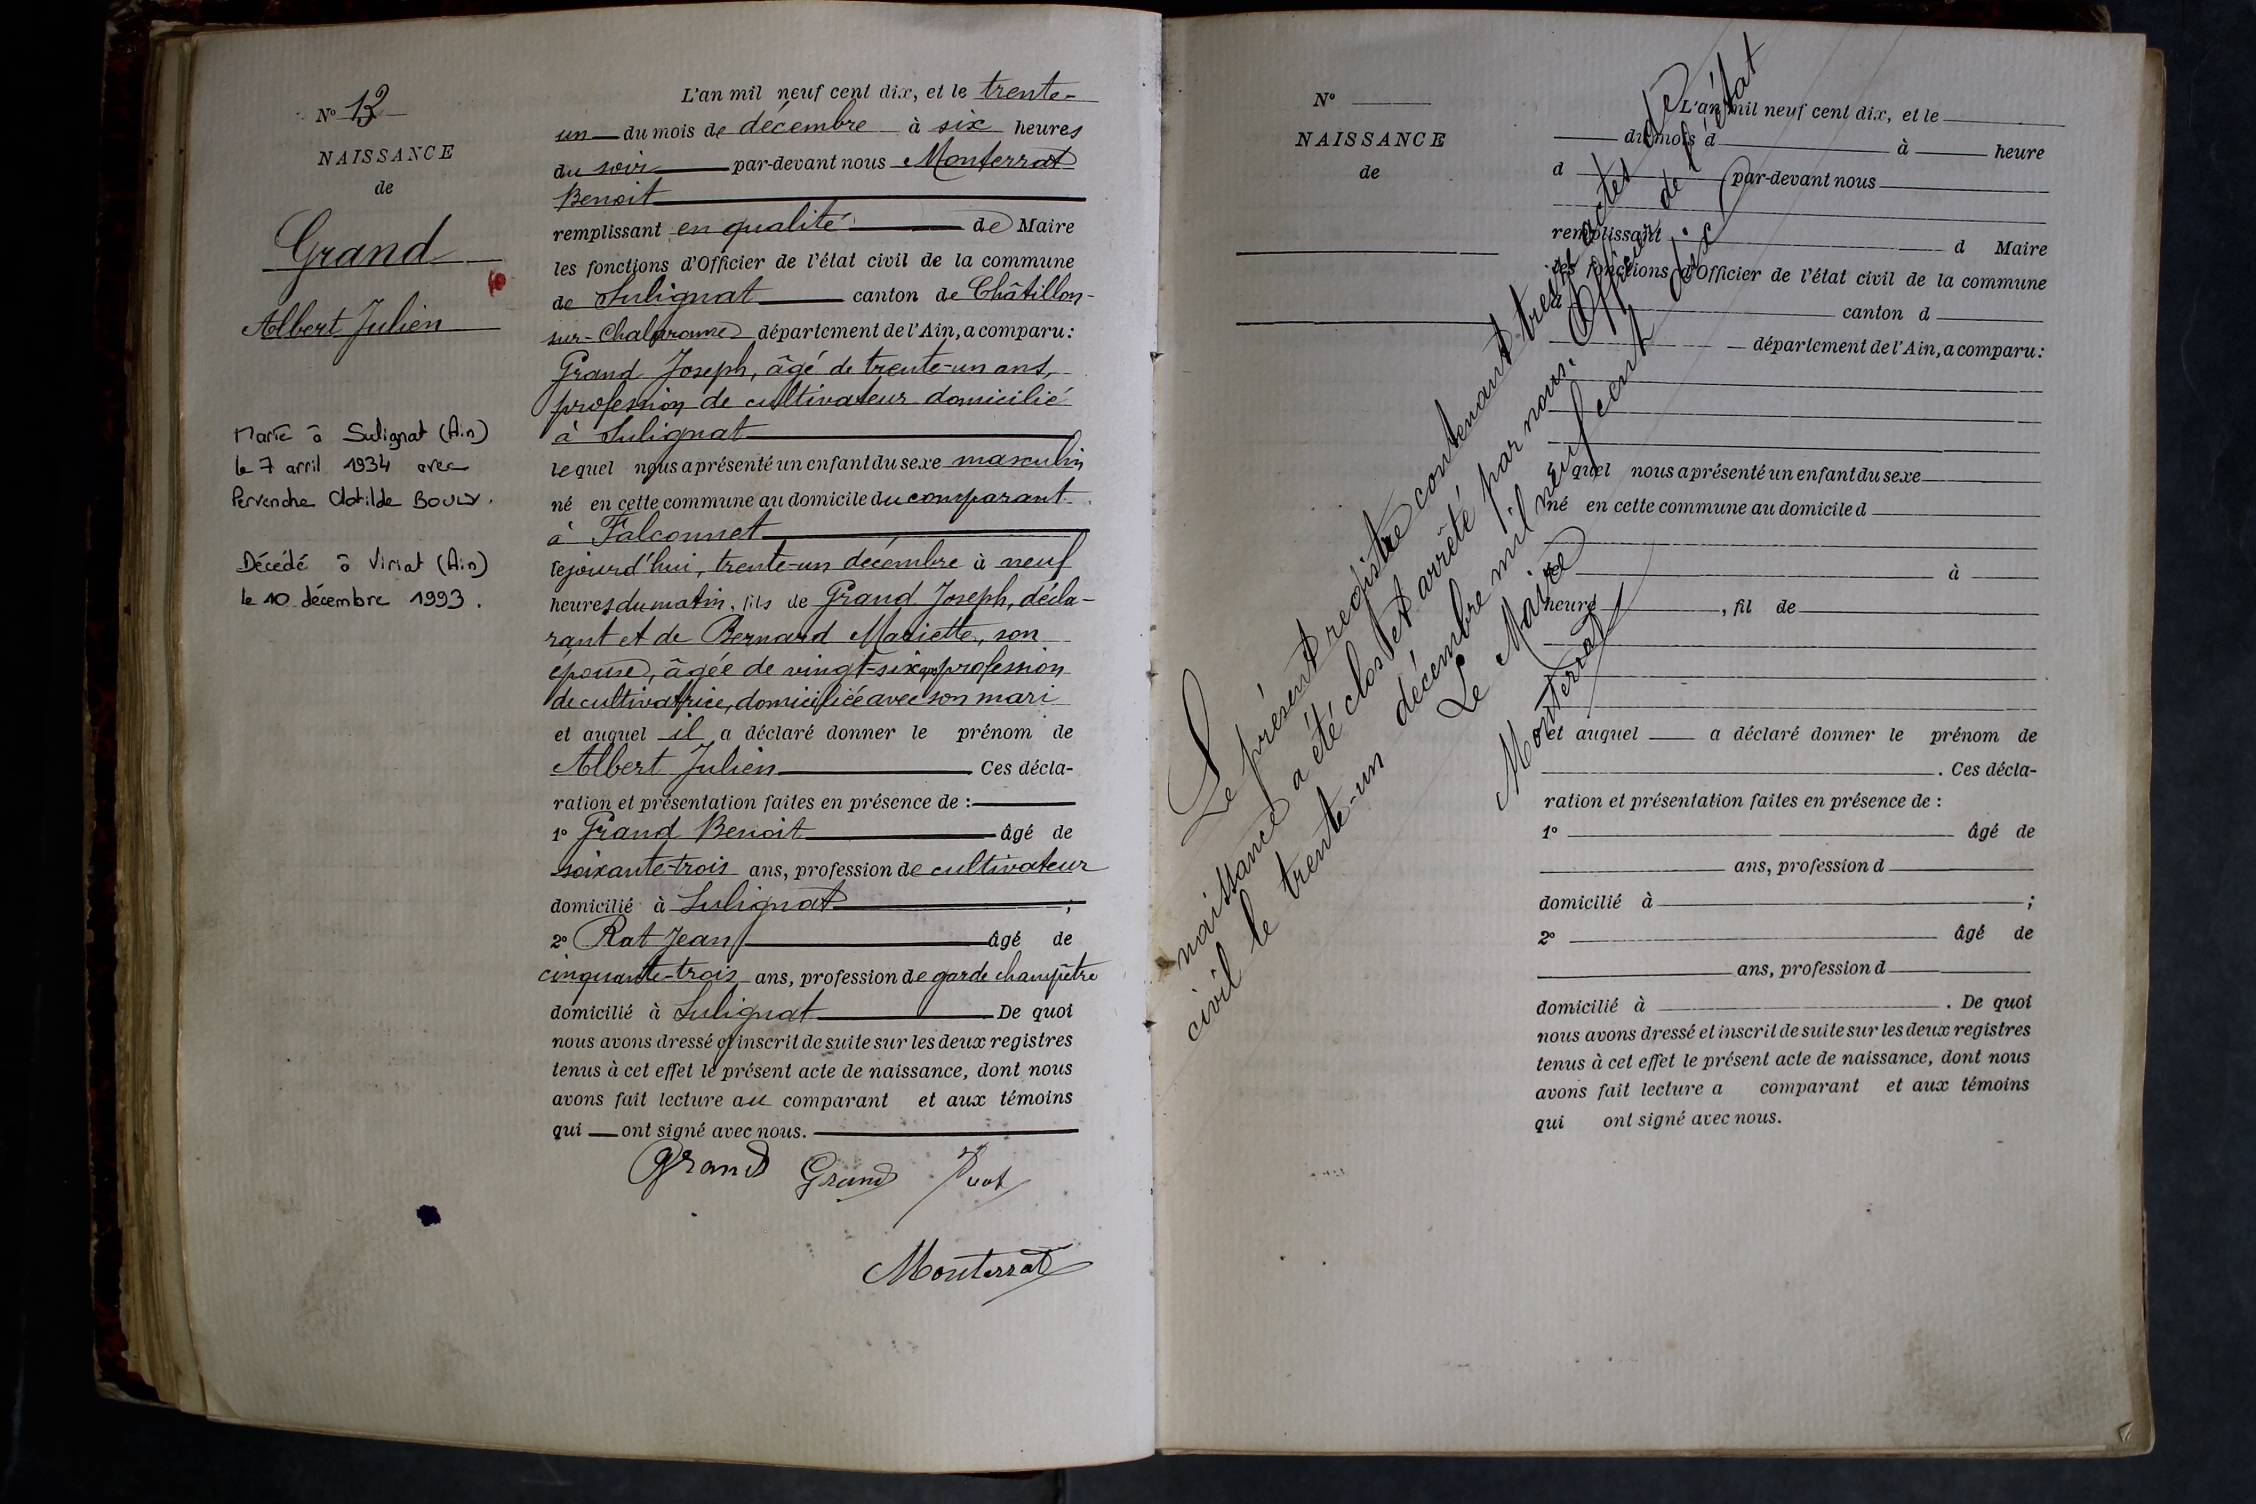 N° 13
NAISSANCE
de
Grand
Albert Julien
Marié à Sulignat (Ain)
le 7 avril 1934 avec
Pervenche Clotilde BOULY.
Décédé à Viriat (Ain)
le 10 décembre 1993.
L'an mil neuf cent dix, et le trente-
un du mois de décembre à six heures
du soir par-devant nous Monterrat
Benoit
remplissant en qualité de Maire
les fonctions d'Officier de l'état civil de la commune
de Sulignat canton de Châtillon-
sur-Chalaronne département de l'Ain, a comparu:
Grand Joseph, âgé de trente-un ans,
profession de cultivateur domicilié
à Sulignat
lequel nous a présenté un enfant du sexe masculin
né en cette commune au domicile du comparant
à Falconnet
cejourd'hui, trente-un décembre à neuf
heures du matin, fils de Grand Joseph, décla-
rant et de Bernard Mariette, son
épouse, âgée de vingt-six ans profession
de cultivatrice, domiciliée avec son mari
et auquel il a déclaré donner le prénom de
Albert Julien Ces décla-
ration et présentation faites en présence de :
1° Grand Benoit âgé de
soixante-trois ans, profession de cultivateur
domicilié à Sulignat ;
2° Rat Jean âgé de
cinquante-trois ans, profession de garde champêtre
domicilié à Sulignat De quoi
nous avons dressé et inscrit de suite sur les deux registres
tenus à cet effet le présent acte de naissance, dont nous
avons fait lecture au comparant et aux témoins
qui ont signé avec nous.
Grand Grand
Monterrat
N°
NAISSANCE
de
L'an mil neuf cent dix, et le
du mois d à heure
d par-devant nous
remplissant d Maire
les fonctions d'Officier de l'état civil de la commune
d canton d
département de l'Ain, a comparu:
quel nous a présenté un enfant du sexe
né en cette commune au domicile d
à
heure , fil de
et auquel a déclaré donner le prénom de
. Ces décla-
ration et présentation faites en présence de :
1° âgé de
ans, profession d
domicilié à ;
2° âgé de
ans, profession d
domicilié à . De quoi
nous avons dressé et inscrit de suite sur les deux registres
tenus à cet effet le présent acte de naissance, dont nous
avons fait lecture a comparant et aux témoins
qui ont signé avec nous.
Le présent registre contenant treize actes de
naissance a été clos et arrêté par nous. Officier de l'état
civil le trente-un décembre mil neuf cent dix
Le Maire
Monterrat